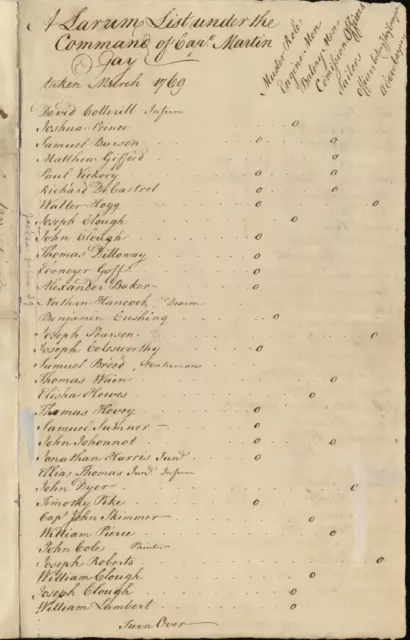 A Larum List under the
Command of Capt Martin
Gay
taken March 1769
Muster Role
Engine Men
Batery Men
Comission Officers
Sailors
Above
David Cotterill Infirm
Joshua Prince o
Samuel Burson o o
Matthew Gifford o
Paul Vickory o o
Richard DeCastrel o o
Walter Hogg o o
Joseph Clough o
John Clough o
Thomas Dilloway o
Ebenezer Goff o
Alexander Baker o
Nathan Hancock Deacon
Benjamin Cushing o
Joseph Pearson o
Joseph Colesworthy o
Samuel Breed
Thomas Wain o
Elisha Howes o
Thomas Hovey o
Samuel Sumner o
John Johonnot o o
Jonathan Harris Junr o
Ellias Thomas Junr Infirm
John Dyer o
Timothy Pike o
Capt John Skimmer o
William Pierce o
John Cole Painter
Joseph Roberts o
William Clough o
Joseph Clough o
William Lambert o
Turn Over